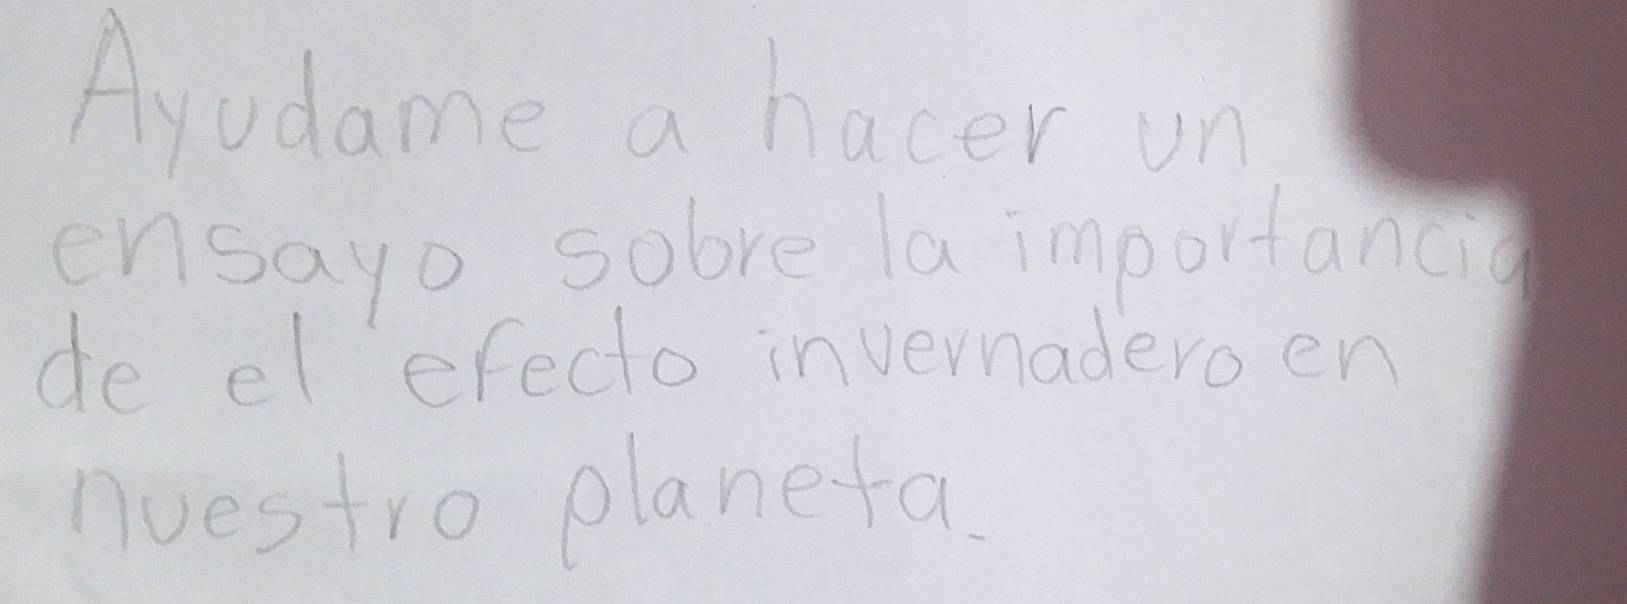 Ayudame a hacer un
ensayo sobre la importancia
de el efecto invernadero en
nuestro planeta.